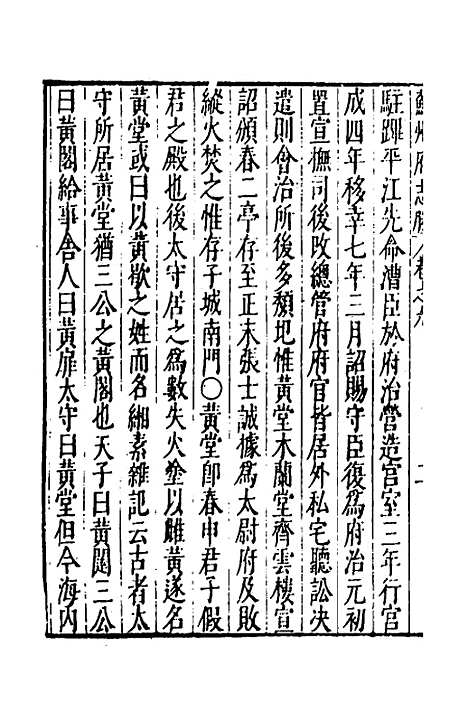 駐蹕平江先命漕臣於府治營造官室三年行宫
成四年移幸七年三月詔賜守臣復爲府治元初
置宣撫司後改總管府府官皆居外私宅聽訟决
遣則會治所後多頹圮惟黄堂木蘭堂齊雲樓宣
詔頒春二亭存至正末張士誠據爲太尉府及敗
縱火焚之惟存子城南門〇黄堂卽春申君子假
君之殿也後太守居之爲數失火塗以雌黄遂名
黄堂或曰以黄歇之姓而名緗素雜記云古者太
守所居黄堂猶三公之黄閣也天子曰黄闥三公
曰黄閣給事舍人曰黄扉太守曰黄堂但今海内